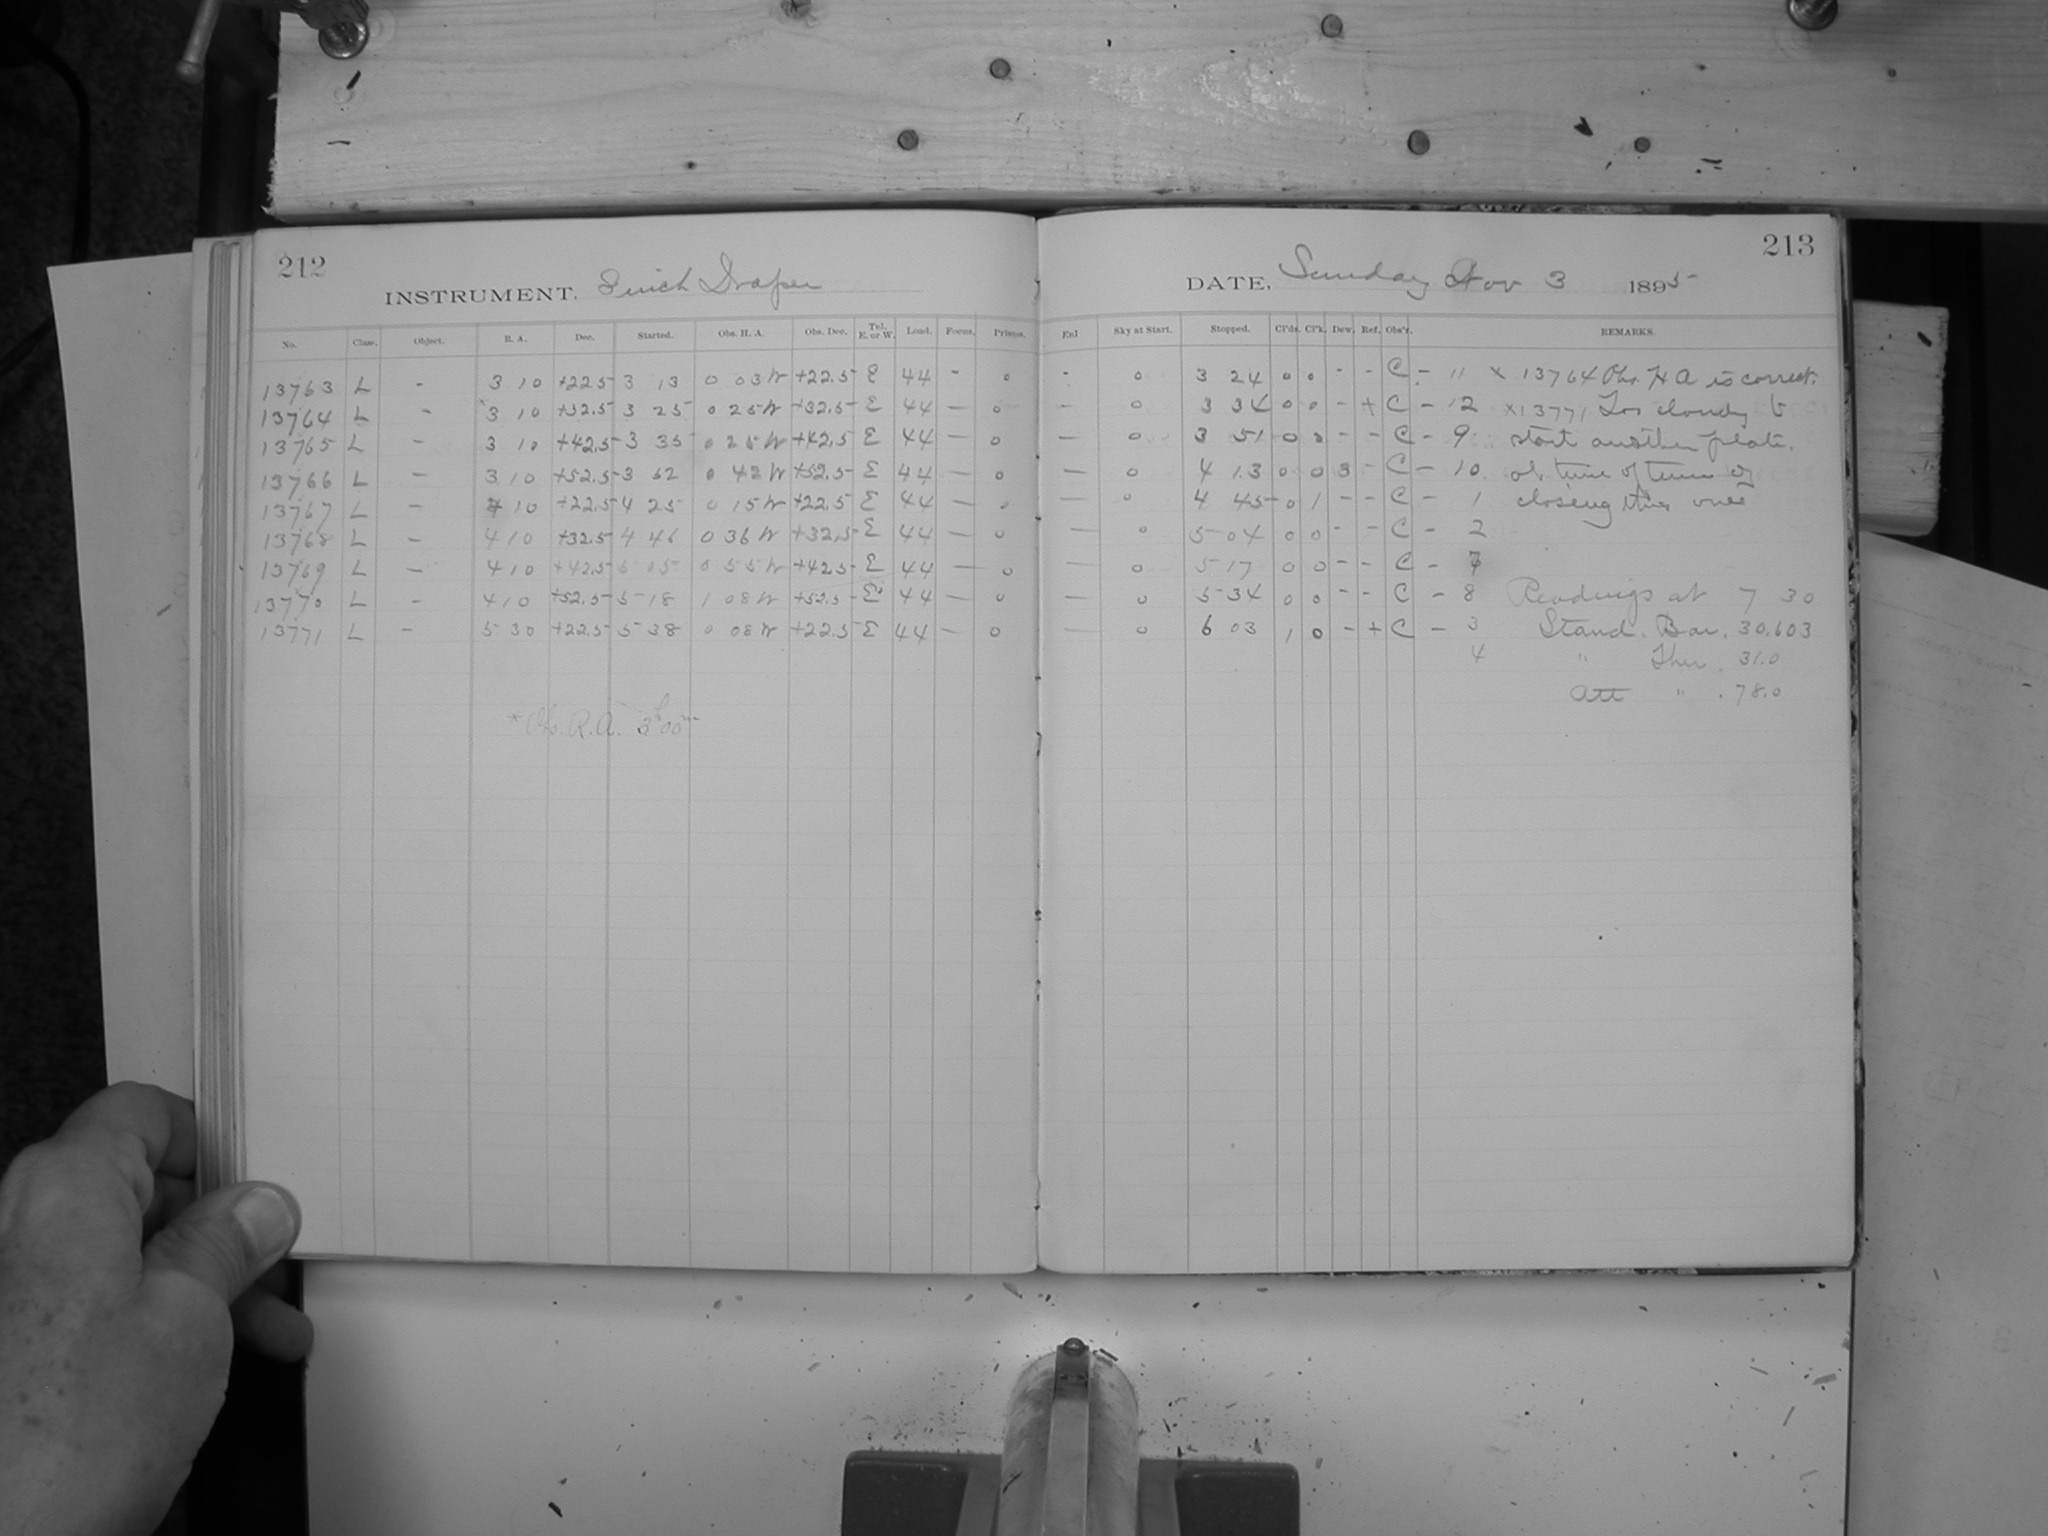 212
INSTRUMENT. 8 inch Draper
No. Class. Object. R. A. Dec. Started. Obs. H. A. Obs. Dec. Tel. E. or W. Load. Focus. Prisms.
13763 L - 3 10 +22.5 3 13 0 03W +22.5 E 44 - 0
13764 L - *3 10 +32.5 3 25 0 25W +32.5 E 44 - 0
13765 L - 3 10 +42.5 3 35 0 25W +42.5 E 44 - 0
13766 L - 3 10 +52.5 3 52 0 42W +52.5 E 44 - 0
13767 L - 4 10 +22.5 4 25 0 15W +22.5 E 44 - 0
13768 L - 4 10 +32.5 4 46 0 36W +32.5 E 44 - 0
13769 L - 4 10 +42.5 5 05 0 55W +42.5 E 44 - 0
13770 L - 4 10 +52.5 5 18 1 08W +52.5 E 44 - 0
13771 L - 5 30 +22.5 5 38 0 08W +22.5 E 44 - 0
* Obs. R.A. 3h 00m
213
DATE, Sunday Nov 3 1895
Enl Sky at Start. Stopped. Cl'ds. Cl'k. Dew. Ref. Obs'r. REMARKS.
- 0 3 24 0 0 - - C - 11 x 13764 Obs. H A is correct.
- 0 3 34 0 0 - + C - 12 x13771 Too cloudy to
- 0 3 51 0 0 - - C - 9 start another plate.
- 0 4 13 0 0 3 - C - 10 at time of
- 0 4 45 0 1 - - C - 1 closing this one
- 0 5 04 0 0 - - C - 2
- 0 5 17 0 0 - - C - 7
- 0 5 34 0 0 - - C - 8 Readings at 7 30
- 0 6 03 1 0 - + C - 3 Stand. Bar. 30.603
4 " Ther. 31.0
Att " . 78.0